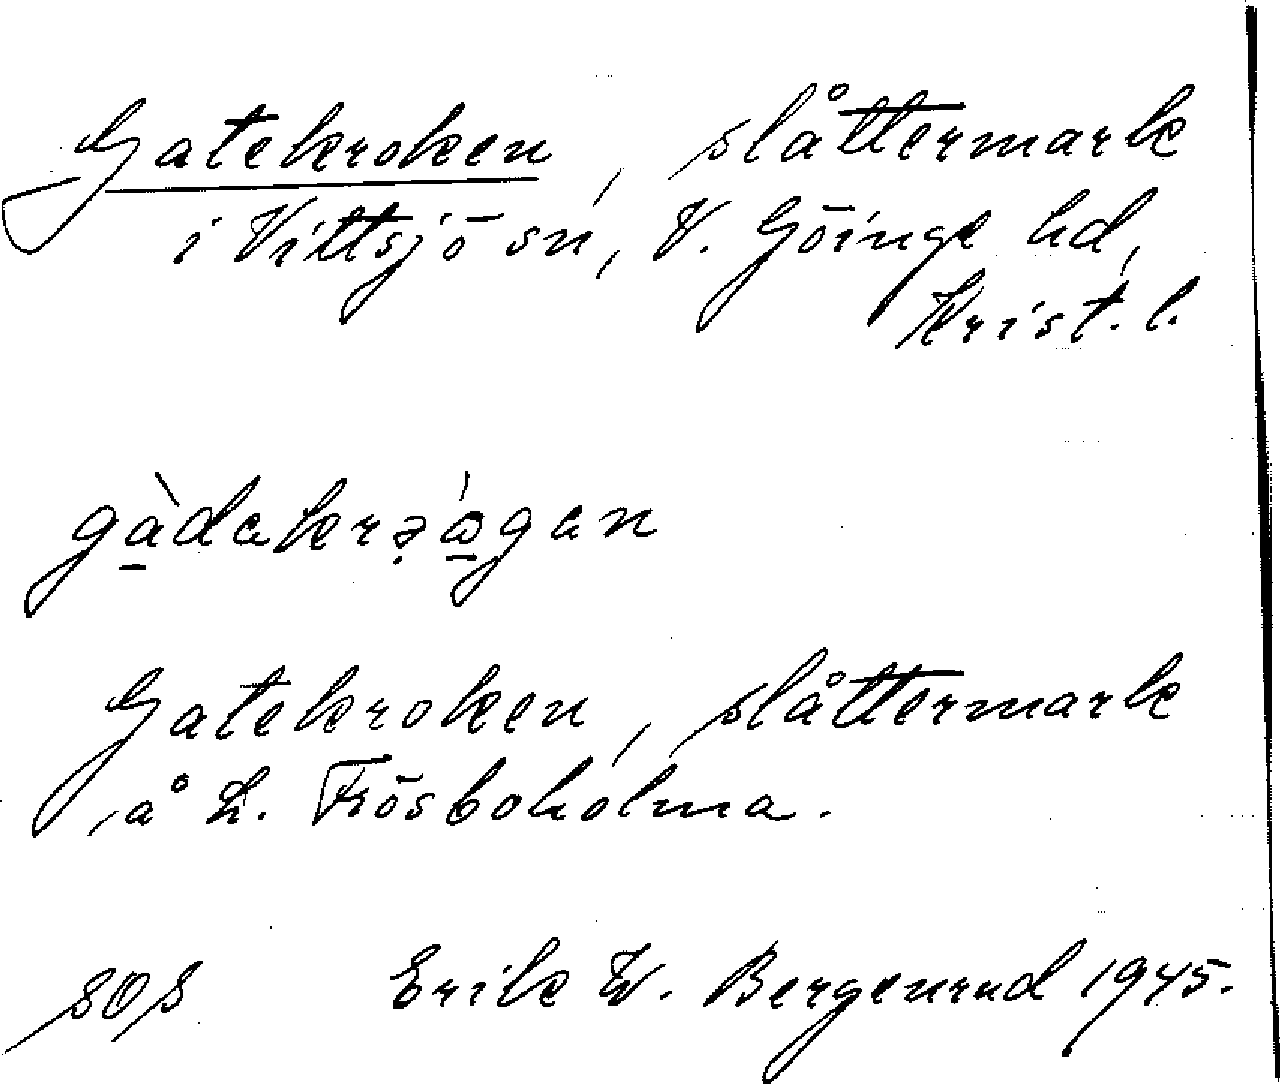 Gatekroken, slåttermark
i Vittsjö sn, V. Göinge hd,
Krist. l.
gàdakrə̣ágan
Gatekroken, slåttermark
å L. Frösboholma.
SOS Erik W. Bergenrud 1945.